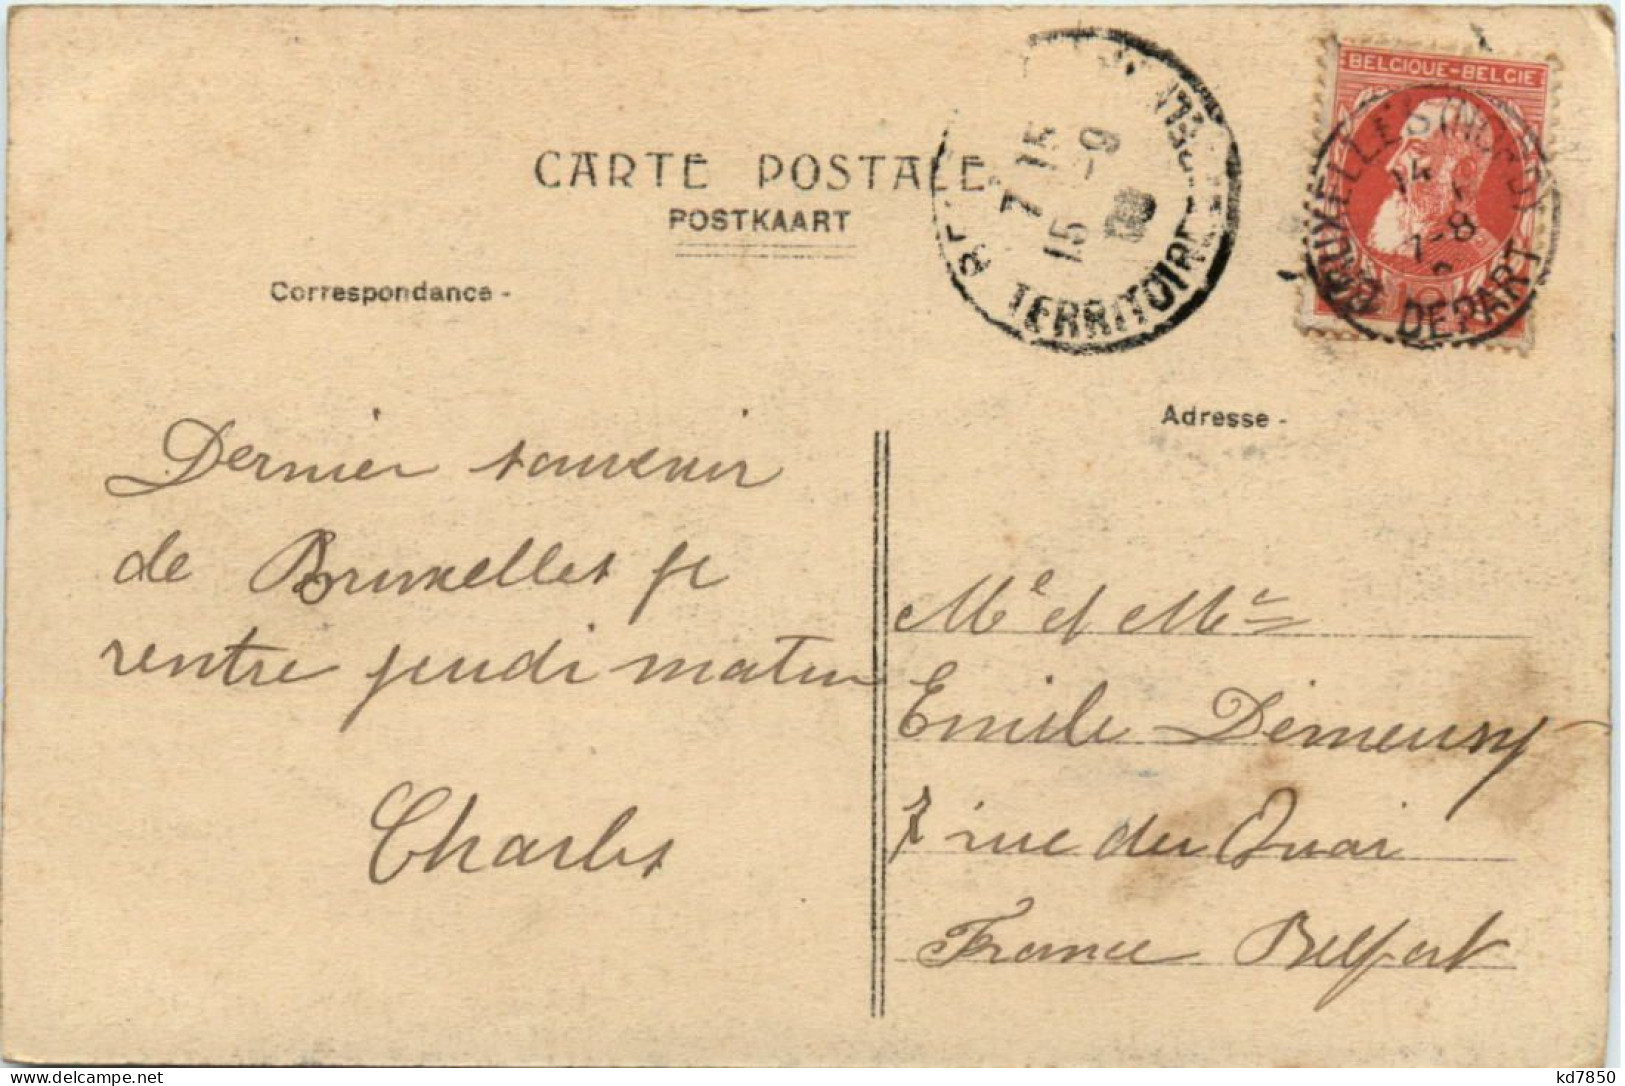 BELGIQUE-BELGIE
BRUXELLES (NORD)
14
7-8
DEPART
7 15
15 -9
TERRITOIRE
CARTE POSTALE
POSTKAART
Correspondance -
Adresse -
Dernier souvenir
de Bruxelles je
rentre jeudi matin
Charles
Mr et Mme
Emile Demeusy
7 rue du Quai
France Belfort
kd7850